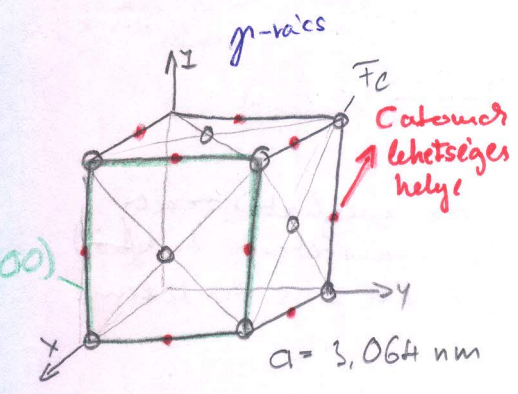 γ-rács
Z
Fe
C atomok
lehetséges
helye
00)
Y
X
a = 3,064 nm